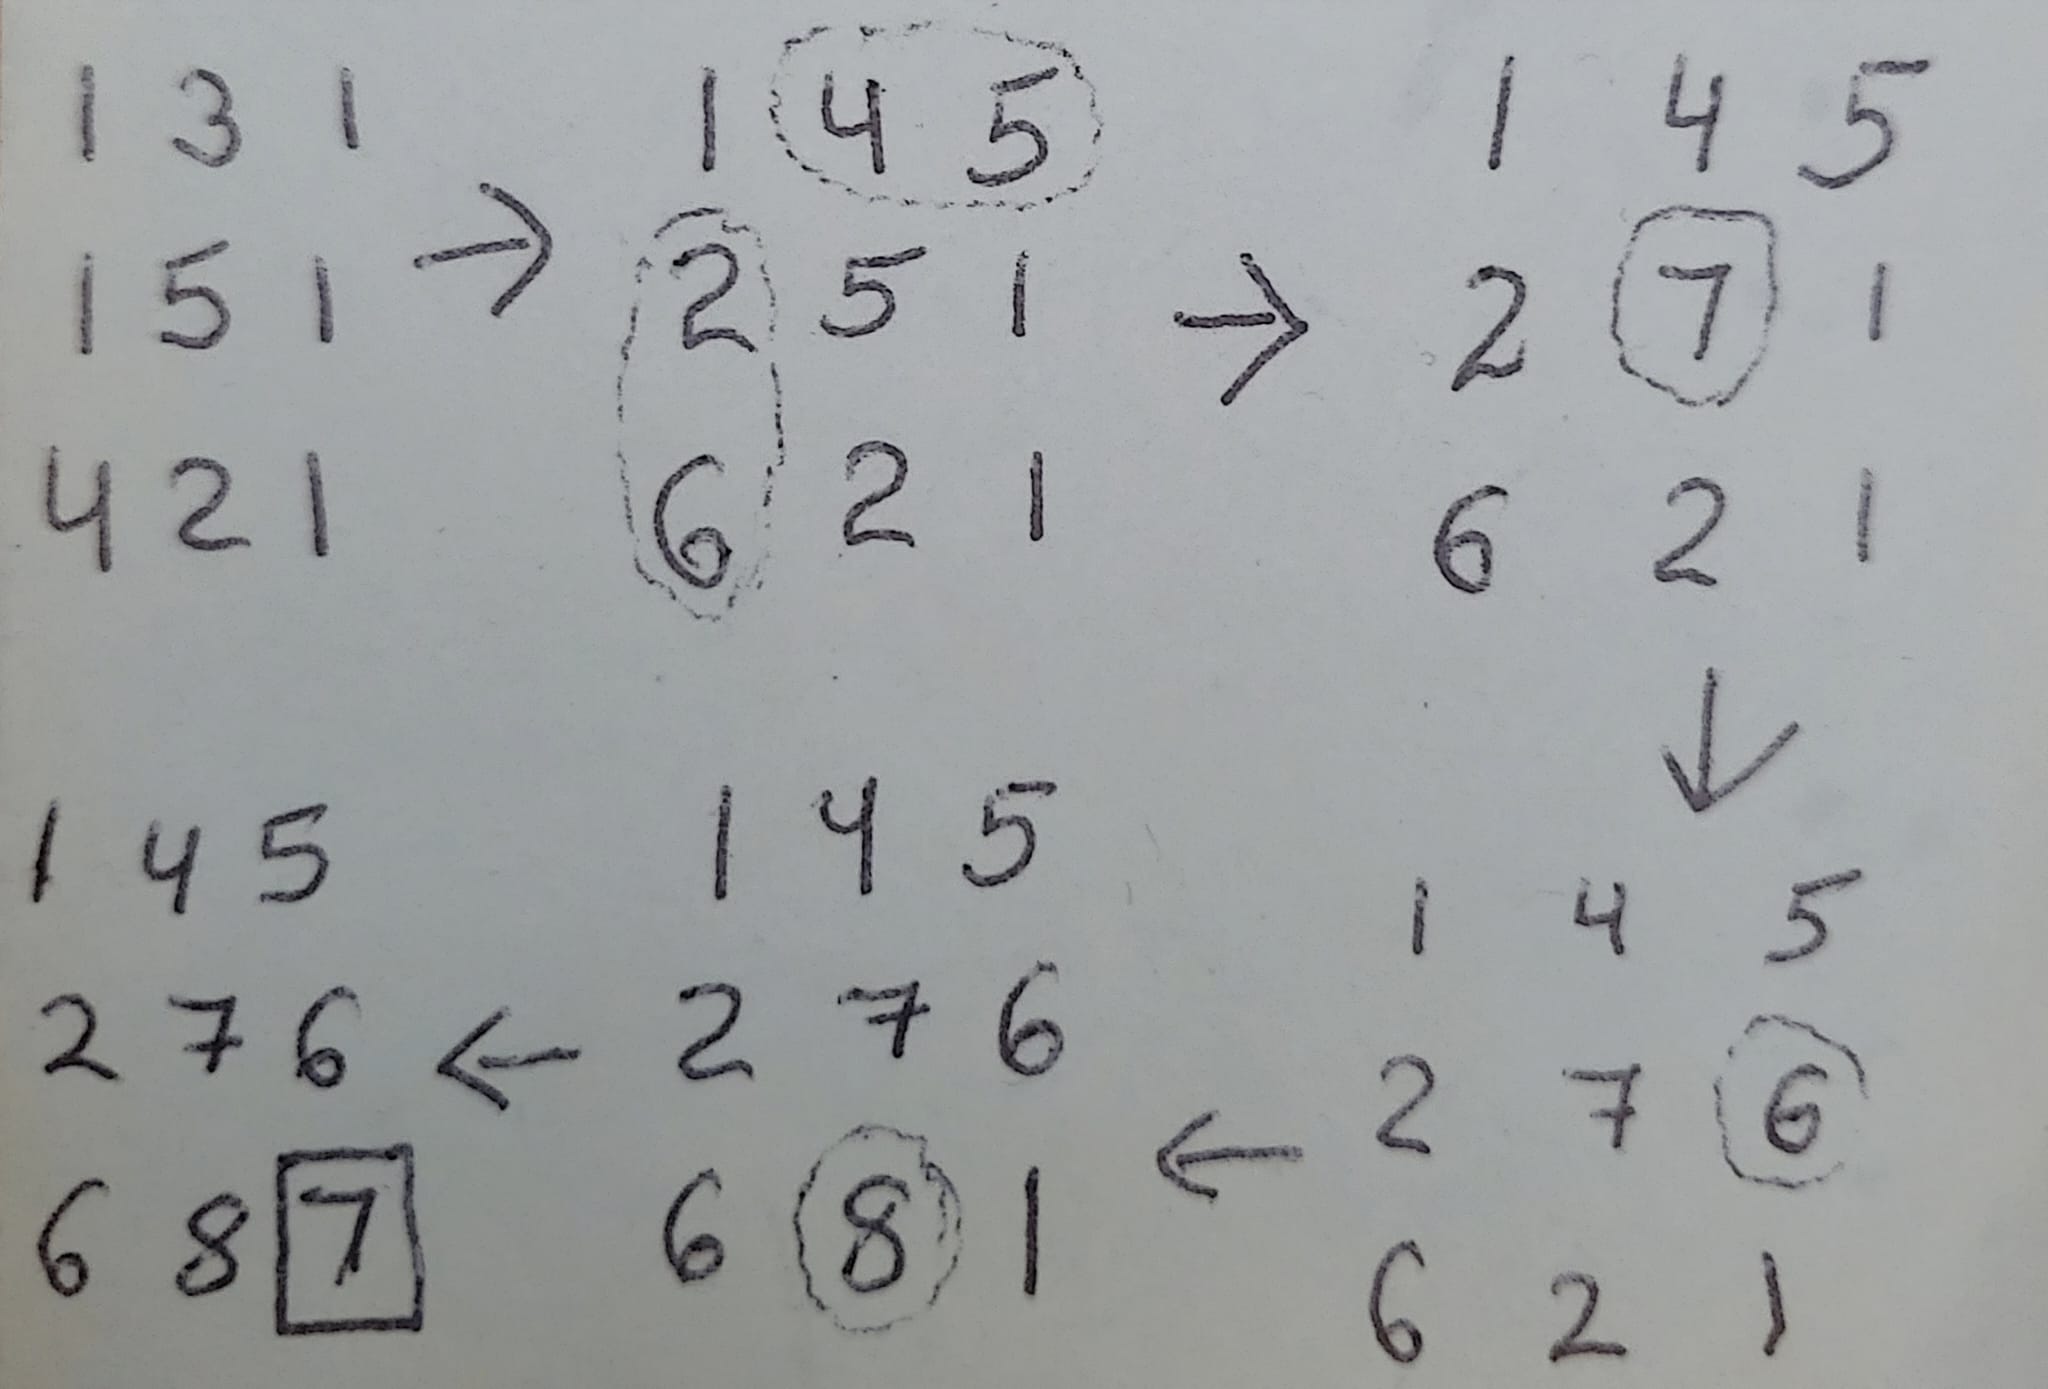 1 3 1
1 5 1
4 2 1
→
1 4 5
2 5 1
6 2 1
→
1 4 5
2 7 1
6 2 1
↓
1 4 5
2 7 6
6 2 1
←
1 4 5
2 7 6
6 8 1
←
1 4 5
2 7 6
6 8 7